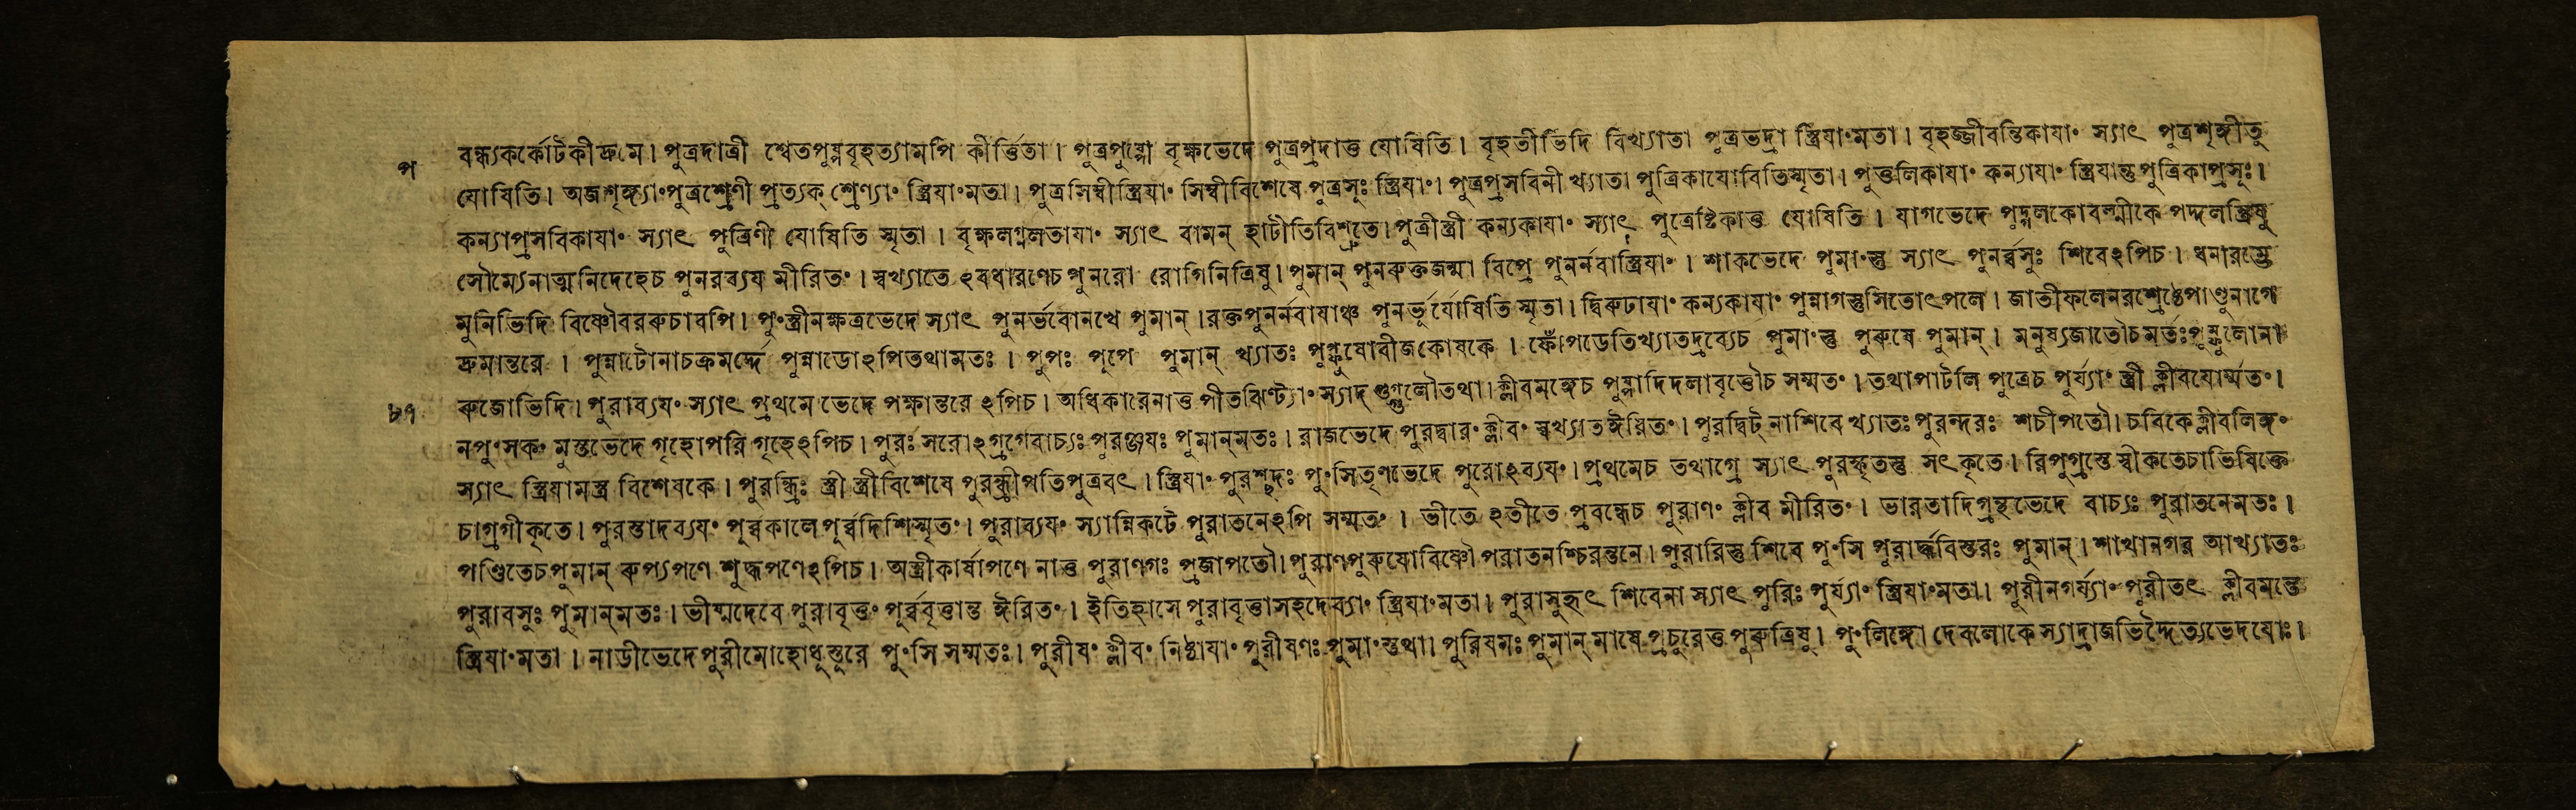 প বন্ধ্যকর্কোটকীদ্রুমে। পুত্রদাত্রী শ্বেতপুষ্পবৃহত্যামপি কীর্ত্তিতা। পুত্রপুষ্পো বৃক্ষভেদে পুত্রপ্রদাত্তু যোষিতি। বৃহতীভিদি বিখ্যাতা পুত্রভদ্রা স্ত্রিযা॰মতা। বৃহজ্জীবন্তিকাযা॰ স্যাৎ পুত্রশৃঙ্গীতু
যোষিতি। অজশৃঙ্গ্যা॰পুত্রশ্রেণী প্রত্যক্ শ্রেণ্যা॰ স্ত্রিযা॰মতা। পুত্রসিম্বীস্ত্রিযা॰ সিম্বীবিশেষে পুত্রসূঃ স্ত্রিযা॰। পুত্রপ্রসবিনী খ্যাতা পুত্রিকাযোষিতিস্মৃতা। পুত্তলিকাযা॰ কন্যাযা॰ স্ত্রিযান্তু পুত্রিকাপ্রসূঃ।
কন্যাপ্রসবিকাযা॰ স্যাৎ পুত্রিণী যোষিতি স্মৃতা। বৃক্ষলগ্নলতাযা॰ স্যাৎ বামন্ হাটীতিবিশ্রুতে। পুত্রীস্ত্রী কন্যকাযা॰ স্যাৎ পুত্রেষ্টিকাত্তু যোষিতি। যাগভেদে পুদ্গলকোবল্মীকে পদ্দলস্ত্রিষু
সৌম্যেনাত্মনিদেহেচ পুনরব্যয মীরিত॰। স্বখ্যাতে ঽবধারণেচ পুনরো রোগিনিত্রিষু। পুমান্ পুনরুক্তজন্মা বিপ্রে পুনর্নবাস্ত্রিযা॰। শাকভেদে পুমা॰স্তু স্যাৎ পুনর্ব্বসুঃ শিবেঽপিচ। ধনারম্ভে
মুনিভিদি বিষ্ণৌবররুচাবপি। পু॰স্ত্রীনক্ষত্রভেদে স্যাৎ পুনর্ভবোনখে পুমান্। রক্তপুনর্নবাযাঞ্চ পুনর্ভূর্যোষিতি স্মৃতা। দ্বিরুঢাযা॰ কন্যকাযা॰ পুন্নাগস্তুসিতোৎপলে। জাতীফলেনরশ্রেষ্ঠেপাণ্ডুনাগে
দ্রুমান্তরে। পুন্নাটোনাচক্রমর্দ্দে পুন্নাডোঽপিতথামতঃ। পুপঃ পূপে পুমান্ খ্যাতঃ বীজকোষকে। ফোঁপডেতিখ্যাতদ্রব্যেচ পুমা॰স্তু পুরুষে পুমান্। মনুষ্যজাতৌচমর্ত্তঃ
৮৭ রুজোভিদি। পুরাব্যয॰ স্যাৎ প্রথমে ভেদে পক্ষান্তরে ঽপিচ। অধিকারেনাত্তু পীতঝিণ্ট্যা॰ স্যাদ্ গুগ্গুলৌতথা। ক্লীবমঙ্গেচ পুষ্পাদিদলাবৃত্তৌচ সম্মত॰। তথাপাটলি পুত্রেচ পুর্য্যা॰ স্ত্রী ক্লীবযোর্ম্মত॰।
নপু॰সক॰ মুস্তভেদে গৃহোপরি গৃহেঽপিচ। পুরঃ সরোঽগ্রগেবাচ্যঃ পুরঞ্জযঃ পুমান্‌মতঃ। রাজভেদে পুরদ্বার॰ ক্লীব॰ স্বখ্যাতঈরিত॰। পুরদ্বিট্ নাশিবে খ্যাতঃ পুরন্দরঃ শচীপতৌ। চবিকেক্লীবলিঙ্গ॰
স্যাৎ স্ত্রিযামস্ত্র বিশেষকে। পুরন্ধ্রিঃ স্ত্রী স্ত্রীবিশেষে পুরন্ধ্রীপতিপুত্রবৎ। স্ত্রিযা॰ পুরশ্ছদঃ পু॰সিতৃণভেদে পুরোঽব্যয॰। প্রথমেচ তথাগ্রে স্যাৎ পুরস্কৃতস্তু সৎকৃতে। রিপুগ্রস্তে স্বীকতেচাভিষিক্তে
চাগ্রগীকৃতে। পুরস্তাদব্যয॰ পূর্ব্বকালেপূর্ব্বদিশিস্মৃত॰। পুরাব্যয॰ স্যান্নিকটে পুরাতনেঽপি সম্মত॰। ভীতে ঽতীতে প্রবন্ধেচ পুরাণ॰ ক্লীব মীরিত॰। ভারতাদিগ্রন্থভেদে বাচ্যঃ পুরাতনেমতঃ।
পণ্ডিতেচপুমান্ রুপ্যপণে শুদ্ধপণেঽপিচ। অস্ত্রীকার্ষাপণে নাত্তু পুরাণগঃ প্রজাপতৌ। পুরাণপুরুষোবিষ্ণৌ পরাতনশ্চিরন্তনে। পুরারিস্তু শিবে পু॰সি পুরার্দ্ধবিস্তরঃ পুমান্। শাখানগর আখ্যাতঃ
পুরাবসুঃ পুমান্‌মতঃ। ভীষ্মদেবে পুরাবৃত্ত॰ পূর্ব্ববৃত্তান্ত ঈরিত॰। ইতিহাসে পুরাবৃত্তাসহদেব্যা॰ স্ত্রিযা॰মতা। পুরাসুহৃৎ শিবেনা স্যাৎ পুরিঃ পুর্য্যা॰ স্ত্রিযা॰মতা। পুরীনগর্য্যা॰ পুরীতৎ ক্লীবমন্ত্রে
স্ত্রিযা॰মতা। নাডীভেদেপুরীমোহোধুস্তুরে পু॰সি সম্মতঃ। পুরীষ॰ ক্লীব॰ নিষ্ঠাযা॰ পুরীষণঃ পুমা॰স্তথা। পুরিষমঃ পুমান্ মাষে প্রচুরেত্তু পুরুত্রিষু। পু॰লিঙ্গো দেবলোকে স্যাদ্রাজভিদ্দৈত্যভেদযোঃ।